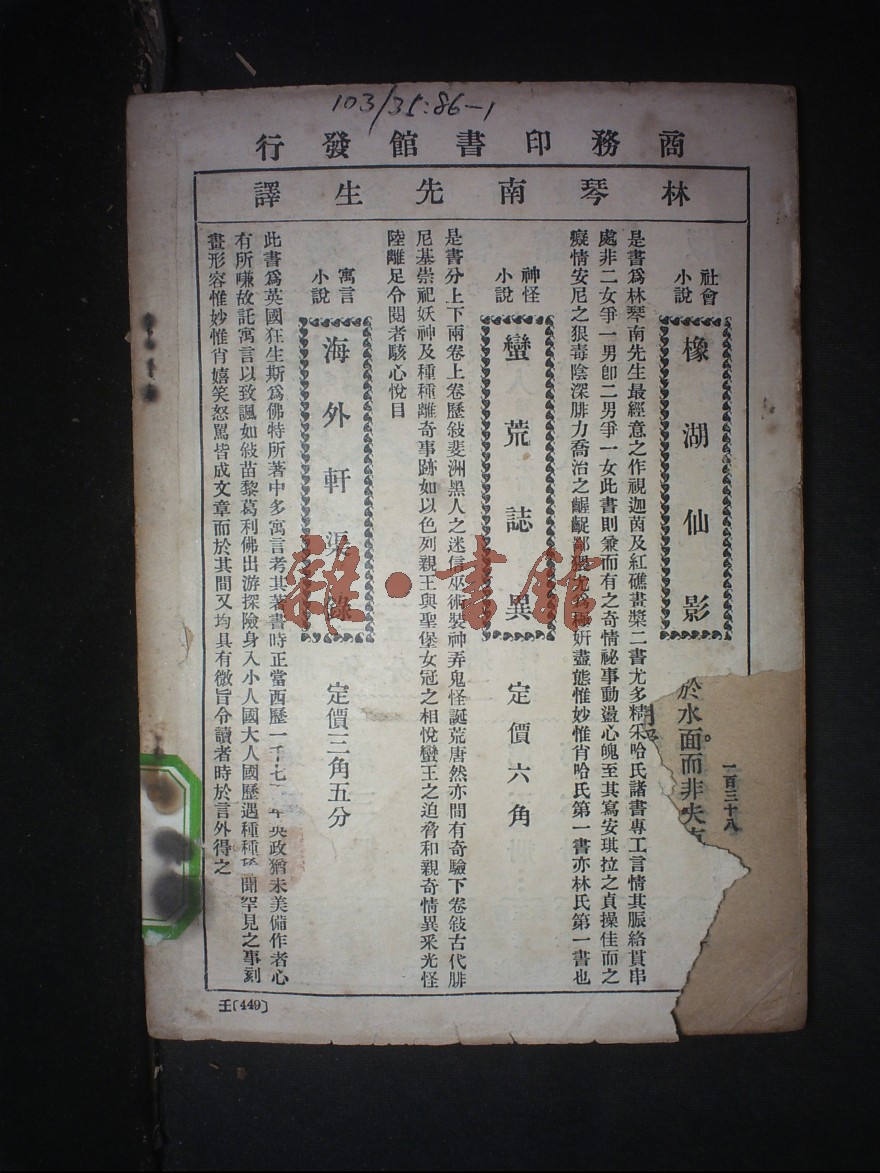 103/35:86-1
商務印書館發行
林琴南先生譯
社會小說
橡湖仙影
是書爲林琴南先生最經意之作視迦茵及紅礁畫槳二書尤多精采哈氏諸書專工言情其脈絡貫串
處非二女爭一男卽二男爭一女此書則兼而有之奇情祕事動盪心魄至其寫安琪拉之貞操佳而之
癡情安尼之狠毒陰深腓力喬治之齷齪鄙猥尤爲極妍盡態惟妙惟肖哈氏第一書亦林氏第一書也
神怪小說
蠻荒誌異
定價六角
是書分上下兩卷上卷歷敍斐洲黑人之迷信巫術裝神弄鬼怪誕荒唐然亦間有奇驗下卷敍古代腓
尼基崇祀妖神及種種離奇事跡如以色列親王與聖堡女冠之相悅蠻王之迫脅和親奇情異采光怪
陸離足令閱者駭心悅目
寓言小說
海外軒渠錄
定價三角五分
此書爲英國狂生斯爲佛特所著中多寓言考其著書時正當西歷一千七年英政猶未美備作者心
有所嗛故託寓言以致諷如敍苗黎葛利佛出游探險身入小人國大人國歷遇種種聞罕見之事刻
畫形容惟妙惟肖嬉笑怒罵皆成文章而於其間又均具有微旨令讀者時於言外得之
一百三十八
於水面。而非失
壬〔449〕
雜·書館